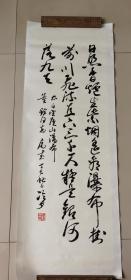 日照香爐生紫烟遥看瀑布挂
前川飛流直下三千尺疑是銀河
落九天
太白望廬山瀑布